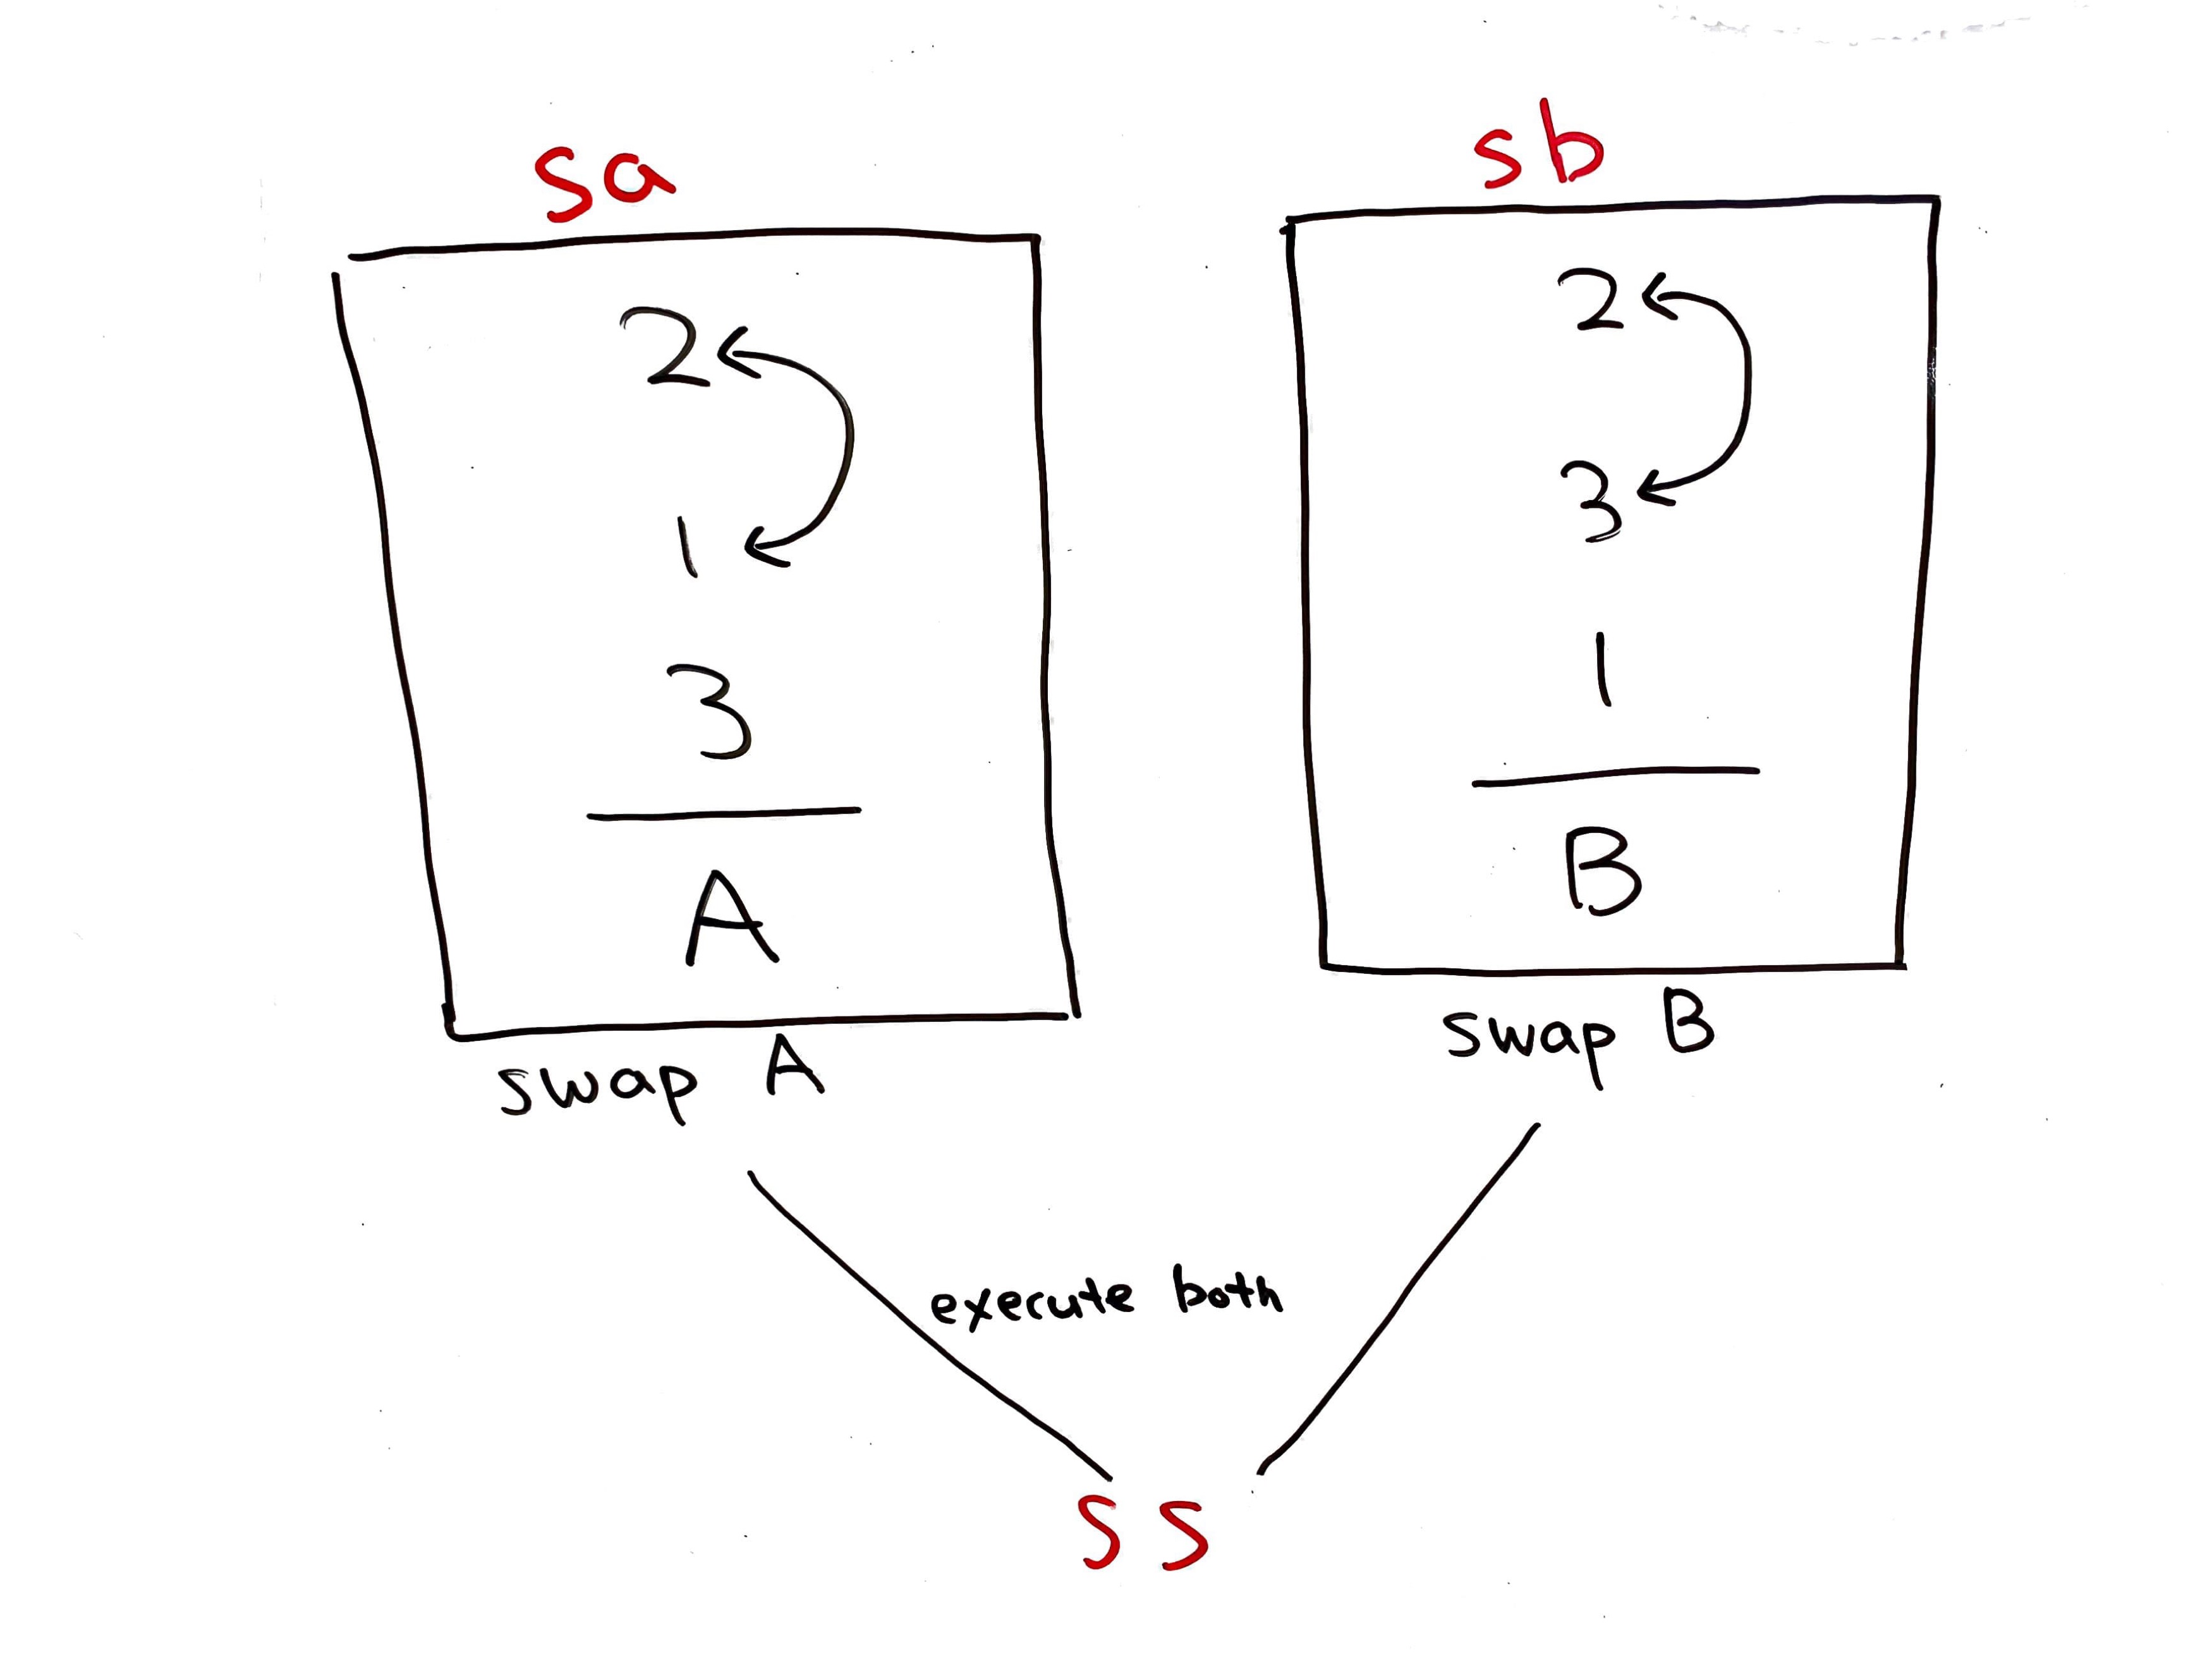 sa
2
1
3
A
swap A
sb
2
3
1
B
swap B
execute both
ss